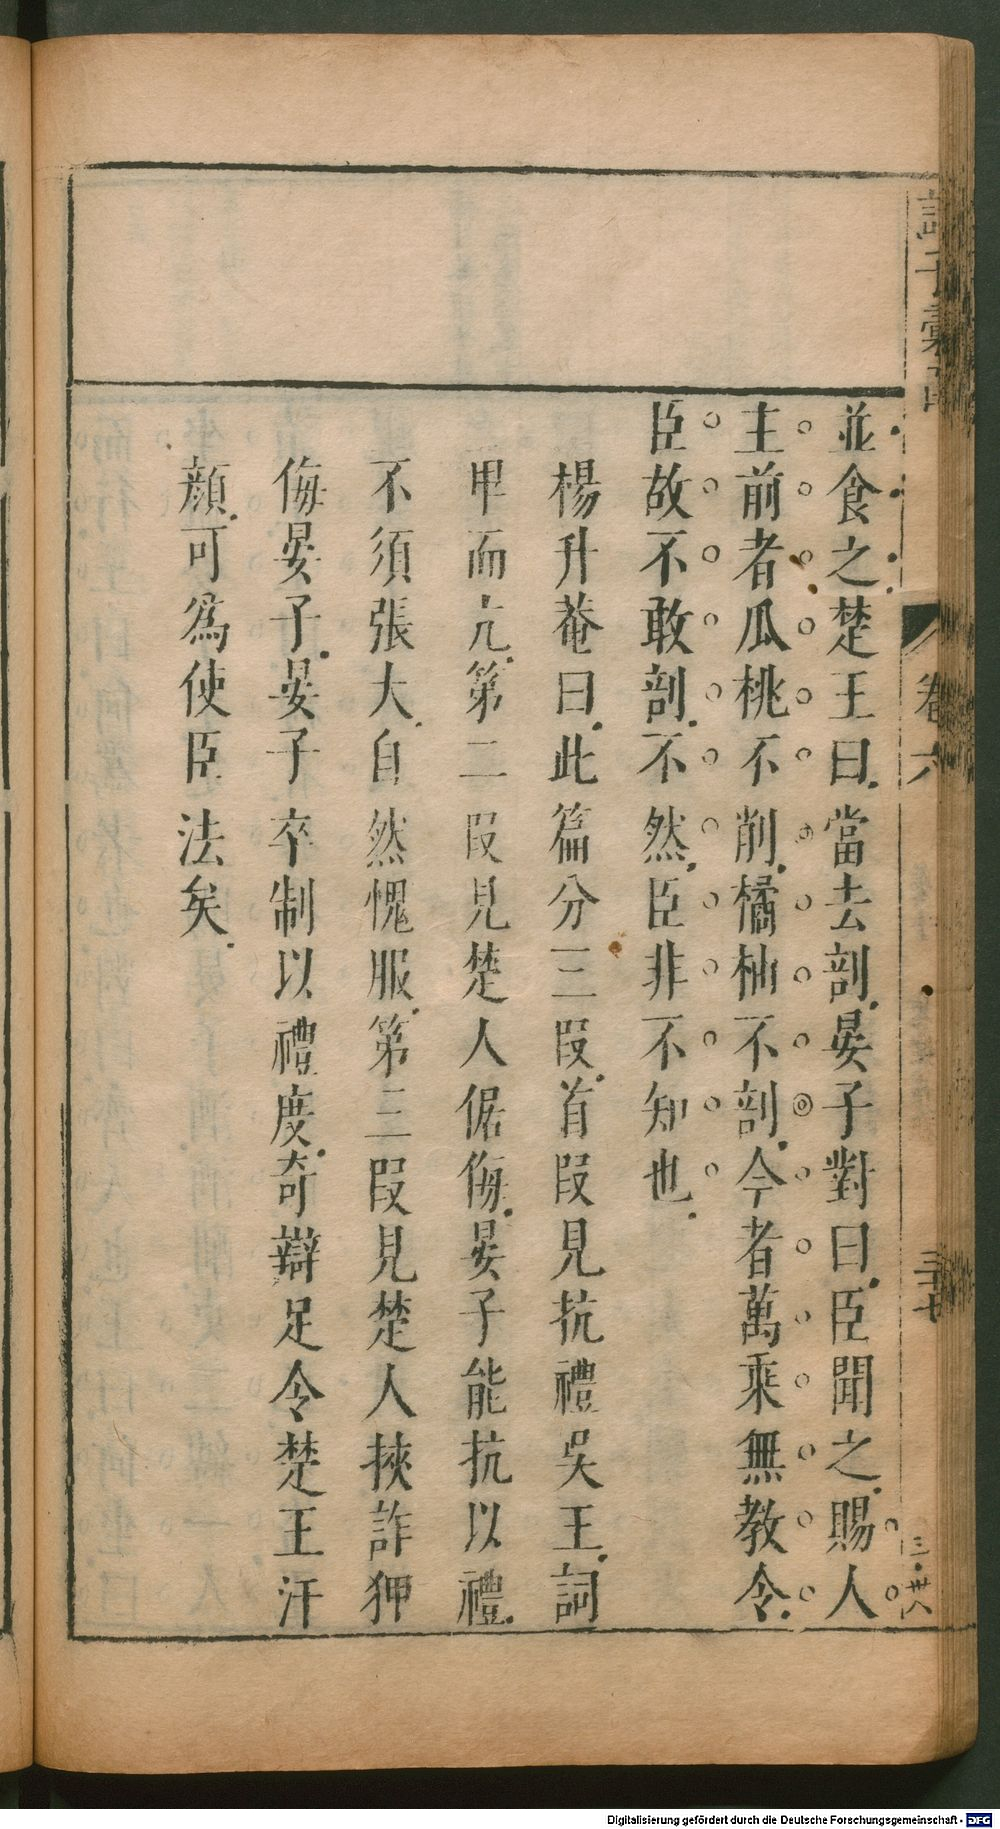 並食之楚王曰當去剖晏子對曰臣聞之賜人
主前者瓜桃不削橘柚不剖今者萬乘無教令
臣故不敢剖不然臣非不知也
楊升菴曰此篇分三段首段見抗禮吳王詞
甲而亢第二段見楚人倨侮晏子能抗以禮
不須張大自然愧服第三段見楚人挾詐狎
侮晏子晏子卒制以禮度奇辯足令楚王汗
顏可爲使臣法矣
卷六
三十七
Digitalisierung gefördert durch die Deutsche Forschungsgemeinschaft - DFG